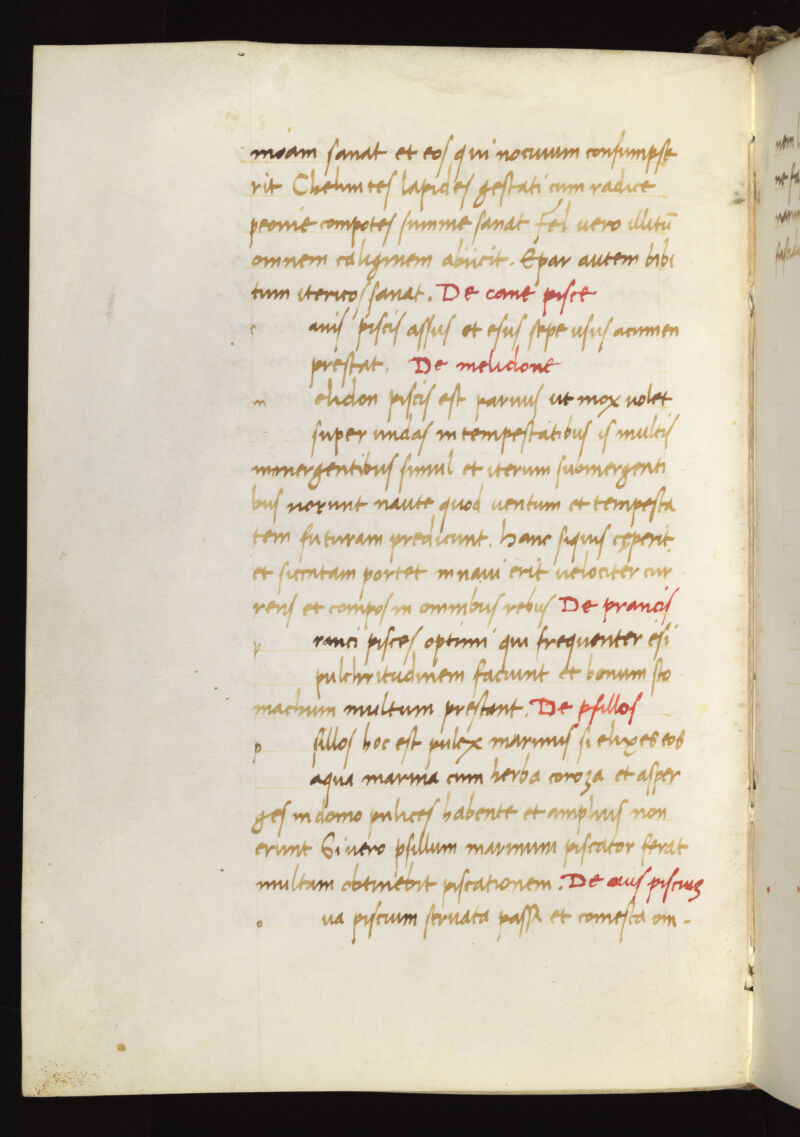 moam sanat et eos qui nocuum consumpse
rit Chelintes lapides gestati cum radice
peonie compotes summe sanat Fel vero illitū
omnem caliginem abiicit. Epar autem bibi
tum itericos sanat. De cane pisce
c anis piscis assus et esus sepe usus acumen
prestat. De melidone
m elidon piscis est parvus ut mox volet
super undas in tempestatibus is multis
inmergentibus simul et iterum submergenti
bus norunt naute quod ventum et tempesta
tem futuram predicunt. hanc siquis cęperit
et siccatam portet in navi erit velociter cur
rens et compos in omnibus rebus De prancis
p ranci pisces optimi qui frequenter esi
pulchritudinem faciunt et bonum sto
machum multum prestant. De psillos
p sillos hoc est pulex marinus si elixes eos
aqua marina cum herba coroza et asper
ges in domo pulices habente et amplius non
erunt Si vero psillum marinum piscator ferat
multam obtinebit piscationem. De ovis piscium
o va piscium servata passa et comesta om-
nem
ne fa